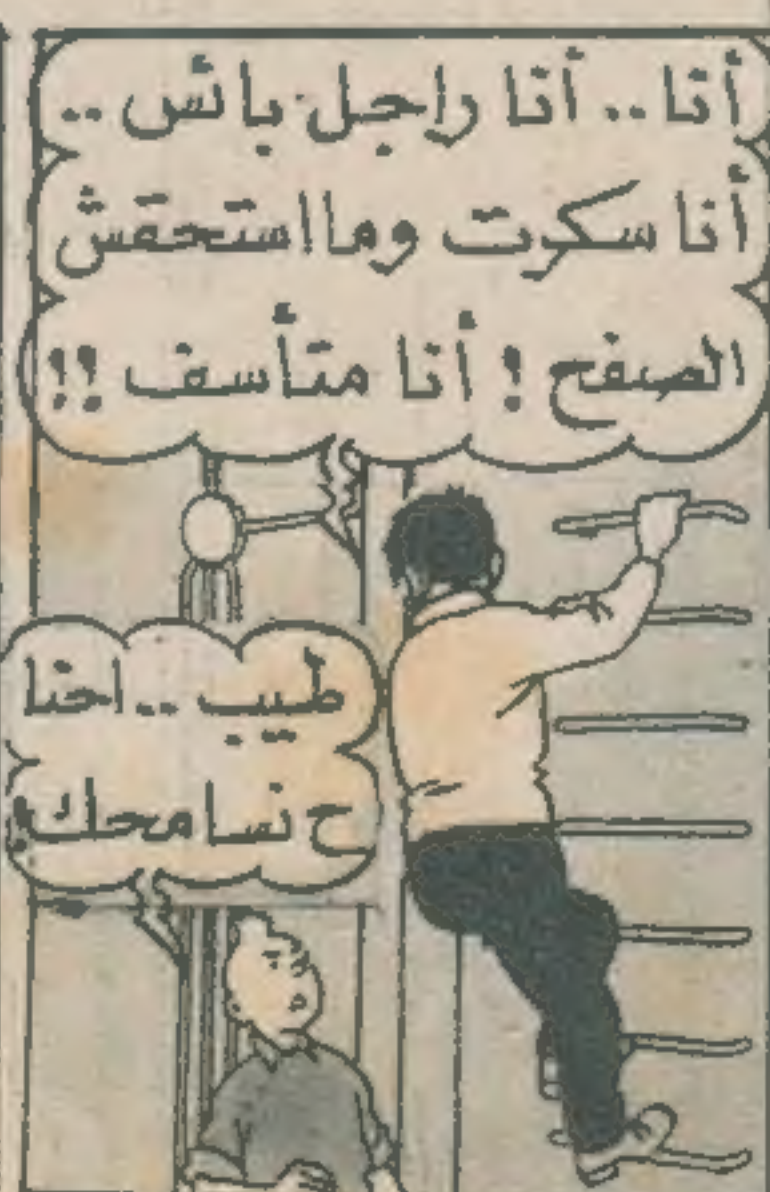 أنا.. أنا راجل بائس..
أنا سكرت وما استحقش
الصفح! أنا متأسف!!
طيب.. احنا
ح نسامحك!